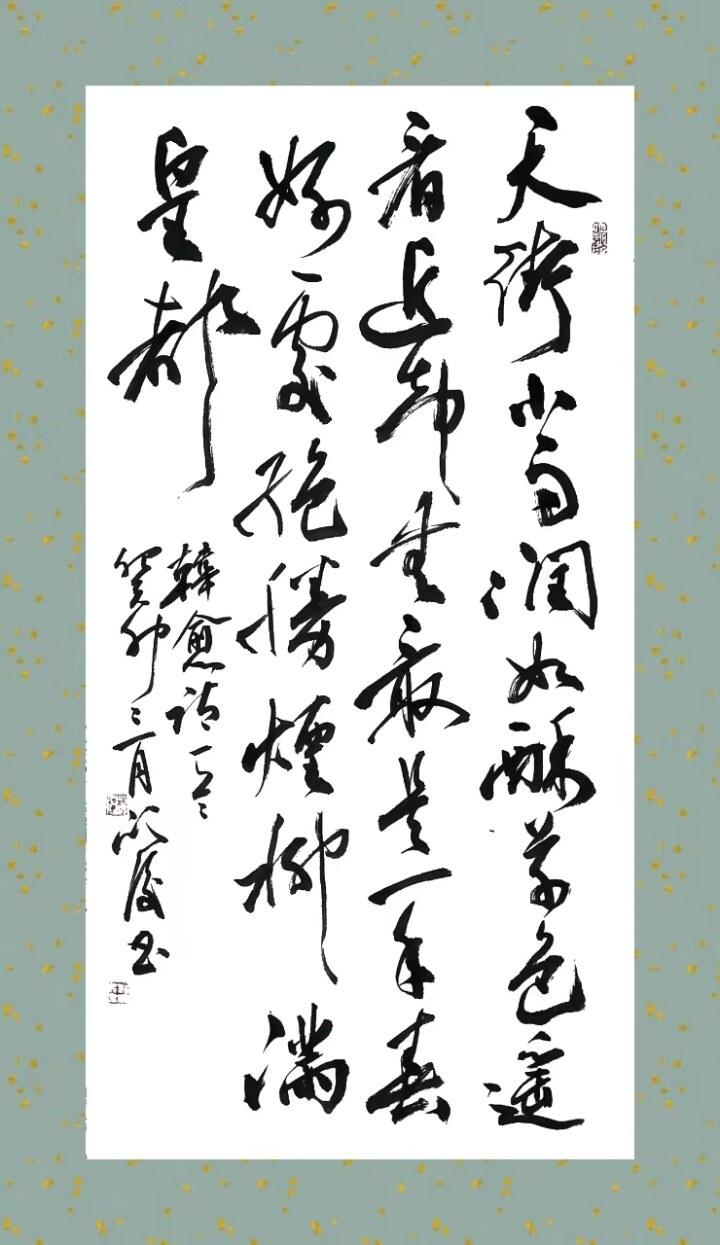 天街小雨润如酥草色遥
看近却無最是一年春
好處絶勝煙柳满
皇都
韓愈诗一
癸卯三月书